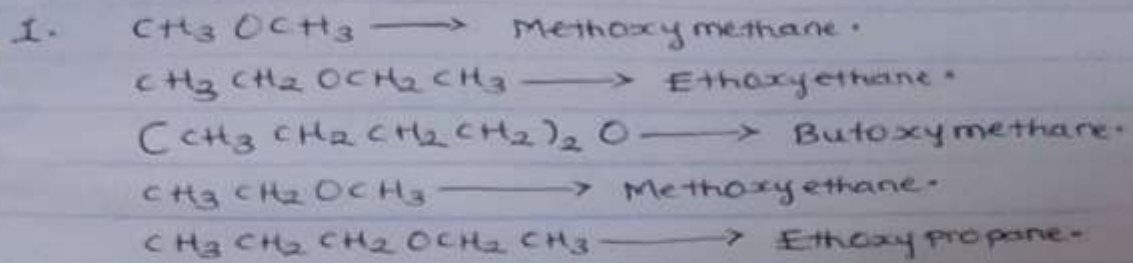 1. CH3 OCH3 → Methoxy methane.
CH3 CH2 OCH2 CH3 → Ethoxyethane.
(CH3 CH2 CH2 CH2)2 O → Butoxymethane.
CH3 CH2 OCH3 → Methoxyethane.
CH3 CH2 CH2 OCH2 CH3 → Ethoxy propane.